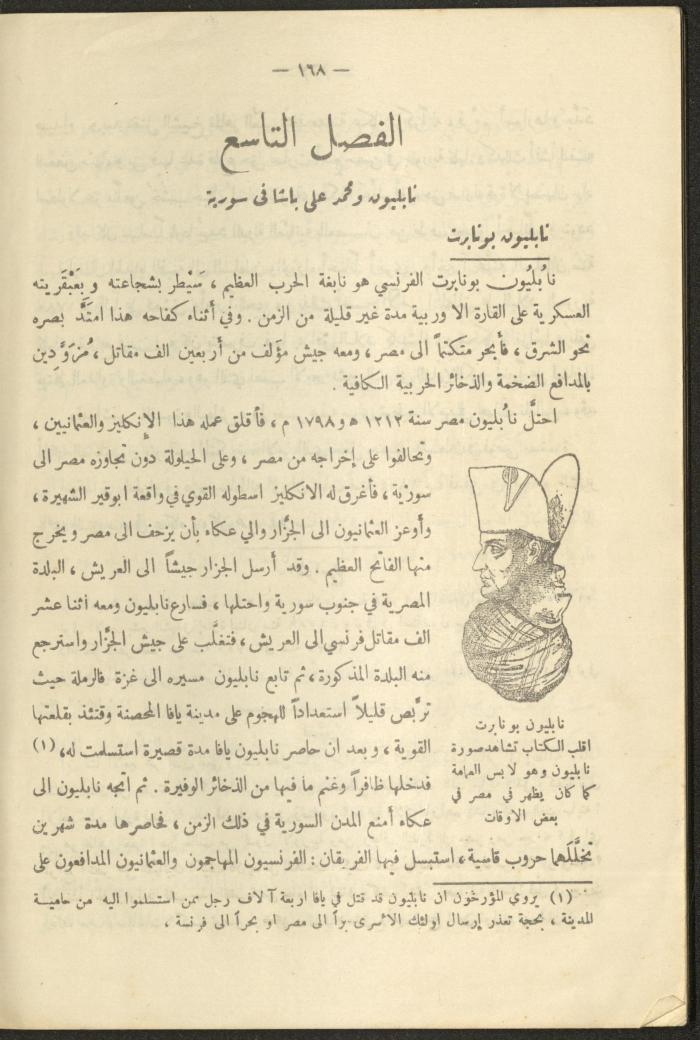 — ١٦٨ —
الفصل التاسع
نابليون ومحمد علي باشا في سورية
نابليون بونابرت
نابُليُون بونابرت الفرنسي هو نابغة الحرب العظيم ، سَيْطر بشجاعته وبعَبْقَريته
العسكرية على القارة الاوربية مدة غير قليلة من الزمن . وفي أثناء كفاحه هذا امتَدَّ بصره
نحو الشرق ، فأبحر متكتماً الى مصر ، ومعه جيش مؤلف من أربعين الف مقاتل ، مُزوَّدين
بالمدافع الضخمة والذخائر الحربية الكافية .
احتلَّ نابُليون مصر سنة ١٢١٢ ھ و ١٧٩٨ م ، فأقلق عمله هذا الإنكليز والعثمانيين ،
وتحالفوا على إخراجه من مصر ، وعلى الحيلولة دون تجاوزه مصر الى
سوريّة ، فأغرق له الانكليز اسطوله القوي في واقعة ابو قير الشهيرة ،
وأوعز العثمانيون الى الجزَّار والي عكاء بأن يزحف الى مصر ويخرج
منها الفاتح العظيم . وقد أرسل الجزار جيشاً الى العريش ، البلدة
المصرية في جنوب سورية واحتلها ، فسارع نابليون ومعه أثنا عشر
الف مقاتل فرنسي الى العريش ، فتغلَّب على جيش الجزَّار واسترجع
منه البلدة المذكورة ، ثم تابع نابليون مسيره الى غزة فالرملة حيث
تربَّص قليلاً استعداداً للهجوم على مدينة يافا المحصنة وقتئذ بقلعتها
القوية ، وبعد ان حاصر نابليون يافا مدة قصيرة استسلمت له، (١)
فدخلها ظافراً وغنم ما فيها من الذخائر الوفيرة . ثم اتجه نابليون الى
عكاء أمنع المدن السورية في ذلك الزمن ، فحاصرها مدة شهرين
تخلَّلَهما حروب قاسية ، استبسل فيها الفريقان : الفرنسيون المهاجمون والعثمانيون المدافعون على
نابليون بونابرت
اقلب الكتاب تشاهد صورة
نابليون وهو لابس العمامة
كما كان يظهر في مصر في
بعض الاوقات
(١) يروي المؤرخون ان نابليون قد قتل في يافا اربعة آلاف رجل ممن استسلموا اليه من حامية
المدينة ، بحجة تعذر إرسال اولئك الأسرى براً الى مصر او بحراً الى فرنسة ،